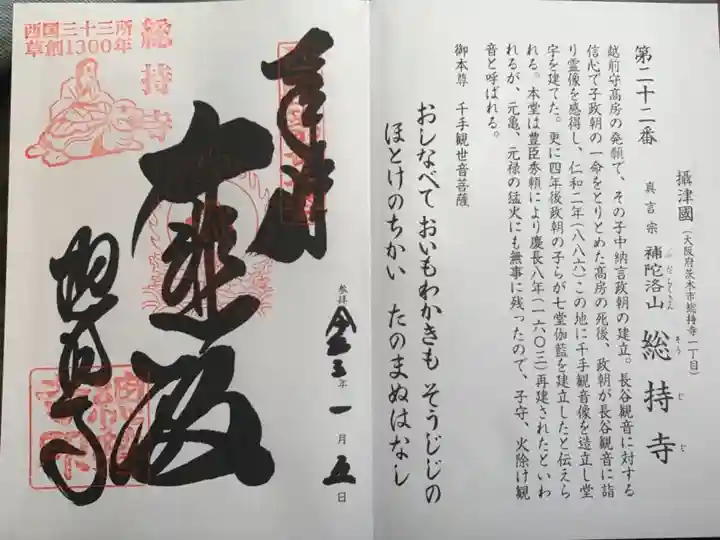 第二十二番
攝津國（大阪府茨木市総持寺一丁目）
真言宗 補陀洛山 総持寺
ふだらくさん そうじじ
越前守高房の発願で、その子中納言政朝の建立。長谷観音に対する
信心で子政朝の一命をとりとめた高房の死後、政朝が長谷観音に詣
り霊像を感得し、仁和二年（八八六）この地に千手観音像を造立し堂
宇を建てた。更に四年後政朝の子らが七堂伽藍を建立したと伝えら
れる。本堂は豊臣秀頼により慶長八年（一六〇三）再建されたといわ
れるが、元亀、元禄の猛火にも無事に残ったので、子守、火除け観
音と呼ばれる。
御本尊 千手観世音菩薩
おしなべて おいもわかきも そうじじの
ほとけのちかい たのまぬはなし
西国三十三所
草創1300年
総持寺
奉拝
大悲殿
総持寺
参拝 令三年一月五日